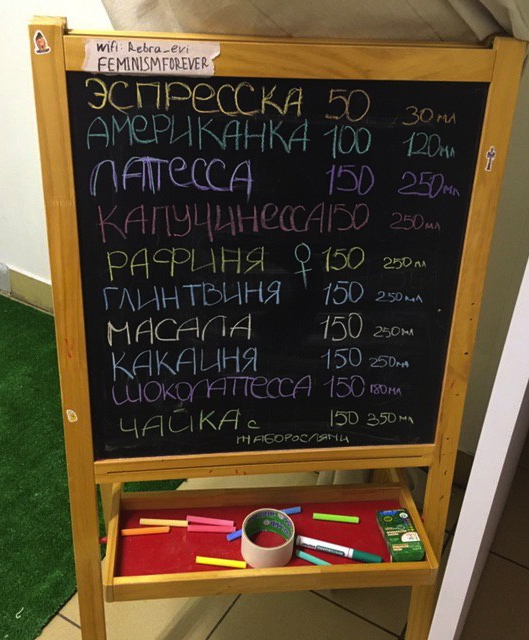 wifi: Rebra_evi
FEMINISMFOREVER
ЭСПРЕССКА 50 30 мл
АМЕРИКАНКА 100 120 мл
ЛАТЕССА 150 250 мл
КАПУЧИНЕССА 150 250 мл
РАФИНЯ ♀ 150 250 мл
ГЛИНТВИНЯ 150 250 мл
МАСАЛА 150 250 мл
КАКАИНЯ 150 250 мл
ШОКОЛАТЕССА 150 180 мл
ЧАЙКА с 150 350 мл